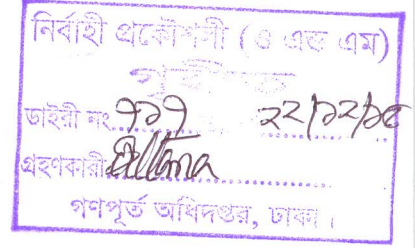 নির্বাহী প্রকৌশলী (ও এন্ড এম)
ডাইরী নং ৭১৭ ২২/১২/১৫
গ্রহণকারী
গণপূর্ত অধিদপ্তর, ঢাকা।